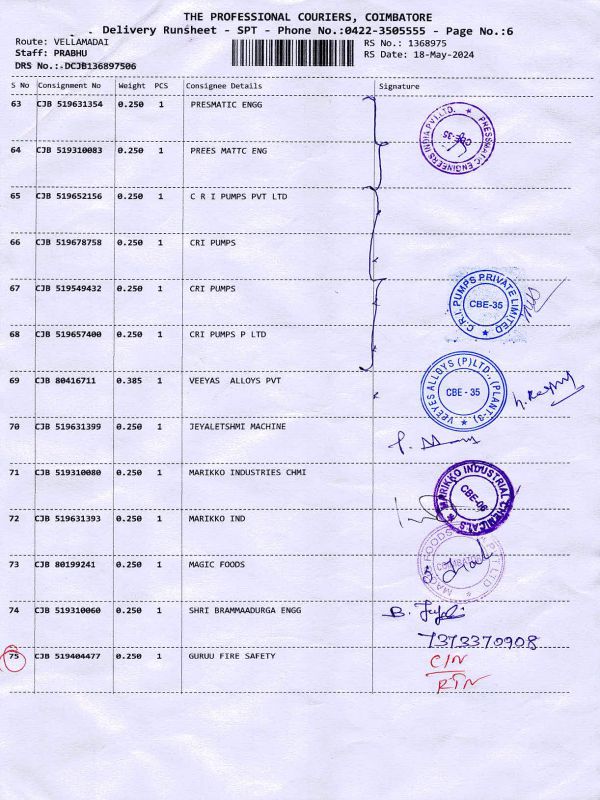 THE PROFESSIONAL COURIERS, COIMBATORE
Delivery Runsheet - SPT - Phone No.:0422-3505555 - Page No.:6
Route: VELLAMADAI
Staff: PRABHU
DRS No.:.DCJB136897506
RS No.: 1368975
RS Date: 18-May-2024
S No Consignment No Weight PCS Consignee Details Signature
63 CJB 519631354 0.250 1 PRESMATIC ENGG
PRESSMATIC ENGINEERS INDIA PVT.LTD. ★ CBE-35
64 CJB 519310083 0.250 1 PREES MATTC ENG
65 CJB 519652156 0.250 1 C R I PUMPS PVT LTD
66 CJB 519678758 0.250 1 CRI PUMPS
67 CJB 519549432 0.250 1 CRI PUMPS
C.R.I. PUMPS PRIVATE LIMITED ★ CBE-35
68 CJB 519657400 0.250 1 CRI PUMPS P LTD
69 CJB 80416711 0.385 1 VEEYAS ALLOYS PVT
VEEYES ALLOYS (P) LTD., (PLANT-3) ★ CBE - 35
70 CJB 519631399 0.250 1 JEYALETSHMI MACHINE
71 CJB 519310080 0.250 1 MARIKKO INDUSTRIES CHMI
★ MARIKKO INDUSTRIAL CHEMICALS CBE-06
72 CJB 519631393 0.250 1 MARIKKO IND
73 CJB 80199241 0.250 1 MAGIC FOODS
FOODS PVT LTD ★ COIMBATORE
74 CJB 519310060 0.250 1 SHRI BRAMMAADURGA ENGG
7373370908
75 CJB 519404477 0.250 1 GURUU FIRE SAFETY
C/N
RTN